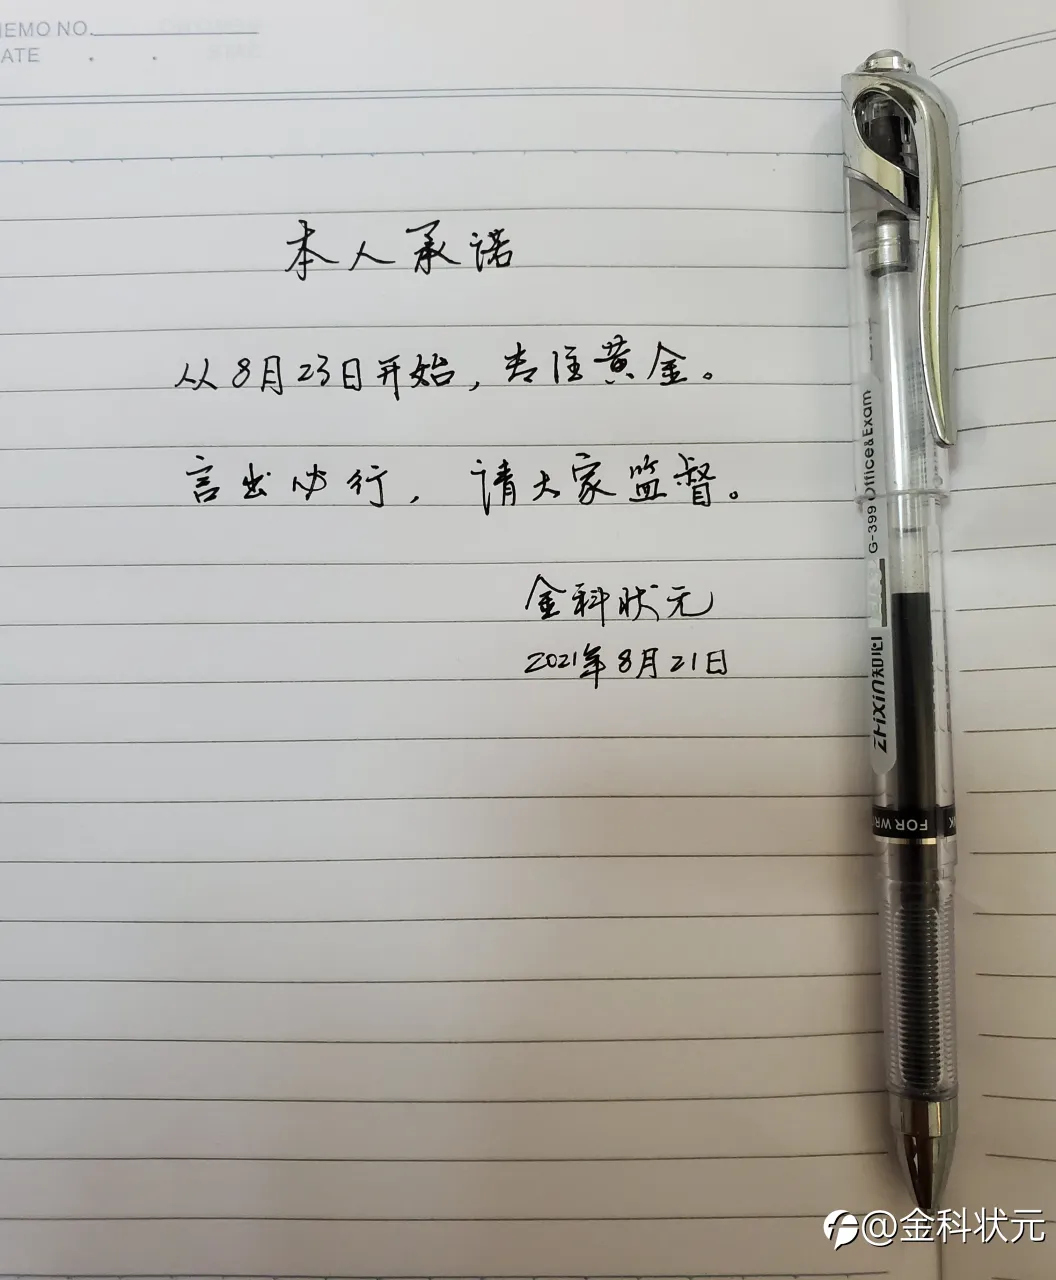 MEMO NO.
ATE
本人承诺
从8月23日开始，专注黄金。
言出必行，请大家监督。
金科状元
2021年8月21日
G-399 Office&Exam
ZHiXin知心
FOR WR
@金科状元